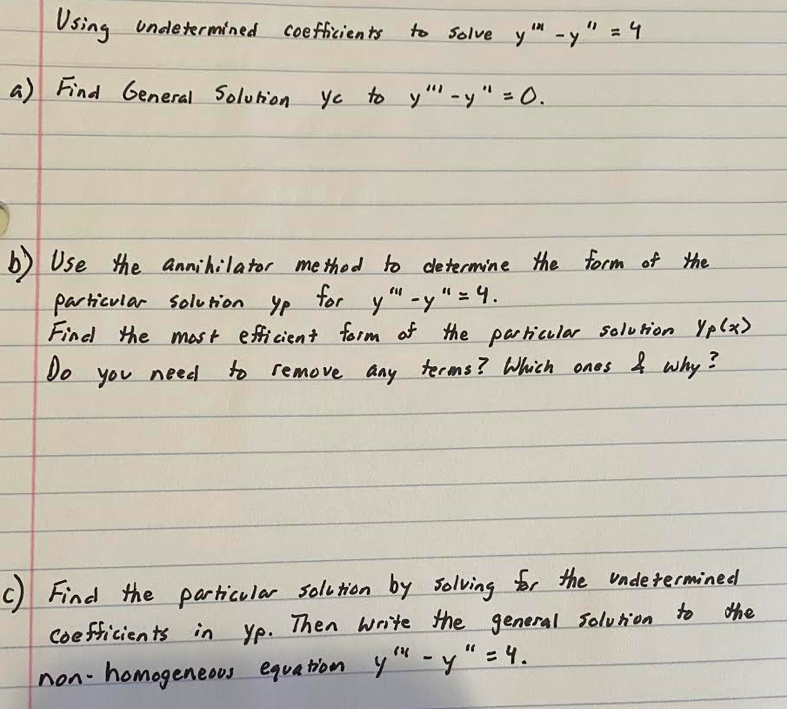 Using undetermined coefficients to solve y''' - y'' = 4
a) Find General Solution yc to y''' - y'' = 0.
b) Use the annihilator method to determine the form of the
particular solution yp for y''' - y'' = 4.
Find the most efficient form of the particular solution Yp(x)
Do you need to remove any terms? Which ones & why?
c) Find the particular solution by solving for the undetermined
coefficients in yp. Then write the general solution to the
non-homogeneous equation y''' - y'' = 4.